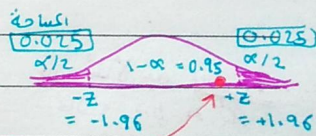 المساحة
0.025 0.025
α/2 1-α = 0.95 α/2
-Z +Z
= -1.96 = +1.96